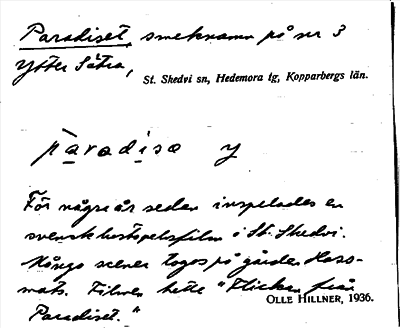 Paradiset, smeknamn på nr 3
Ytter Sätra,
St. Skedvi sn, Hedemora tg, Kopparbergs län.
paradisa y
För några år sedan inspelades en
svensk lustspelsfilm i St. Skedvi.
Några scener togos på gården Hass-
mats. Filmen hette "Flickan från
Paradiset."
OLLE HILLNER, 1936.